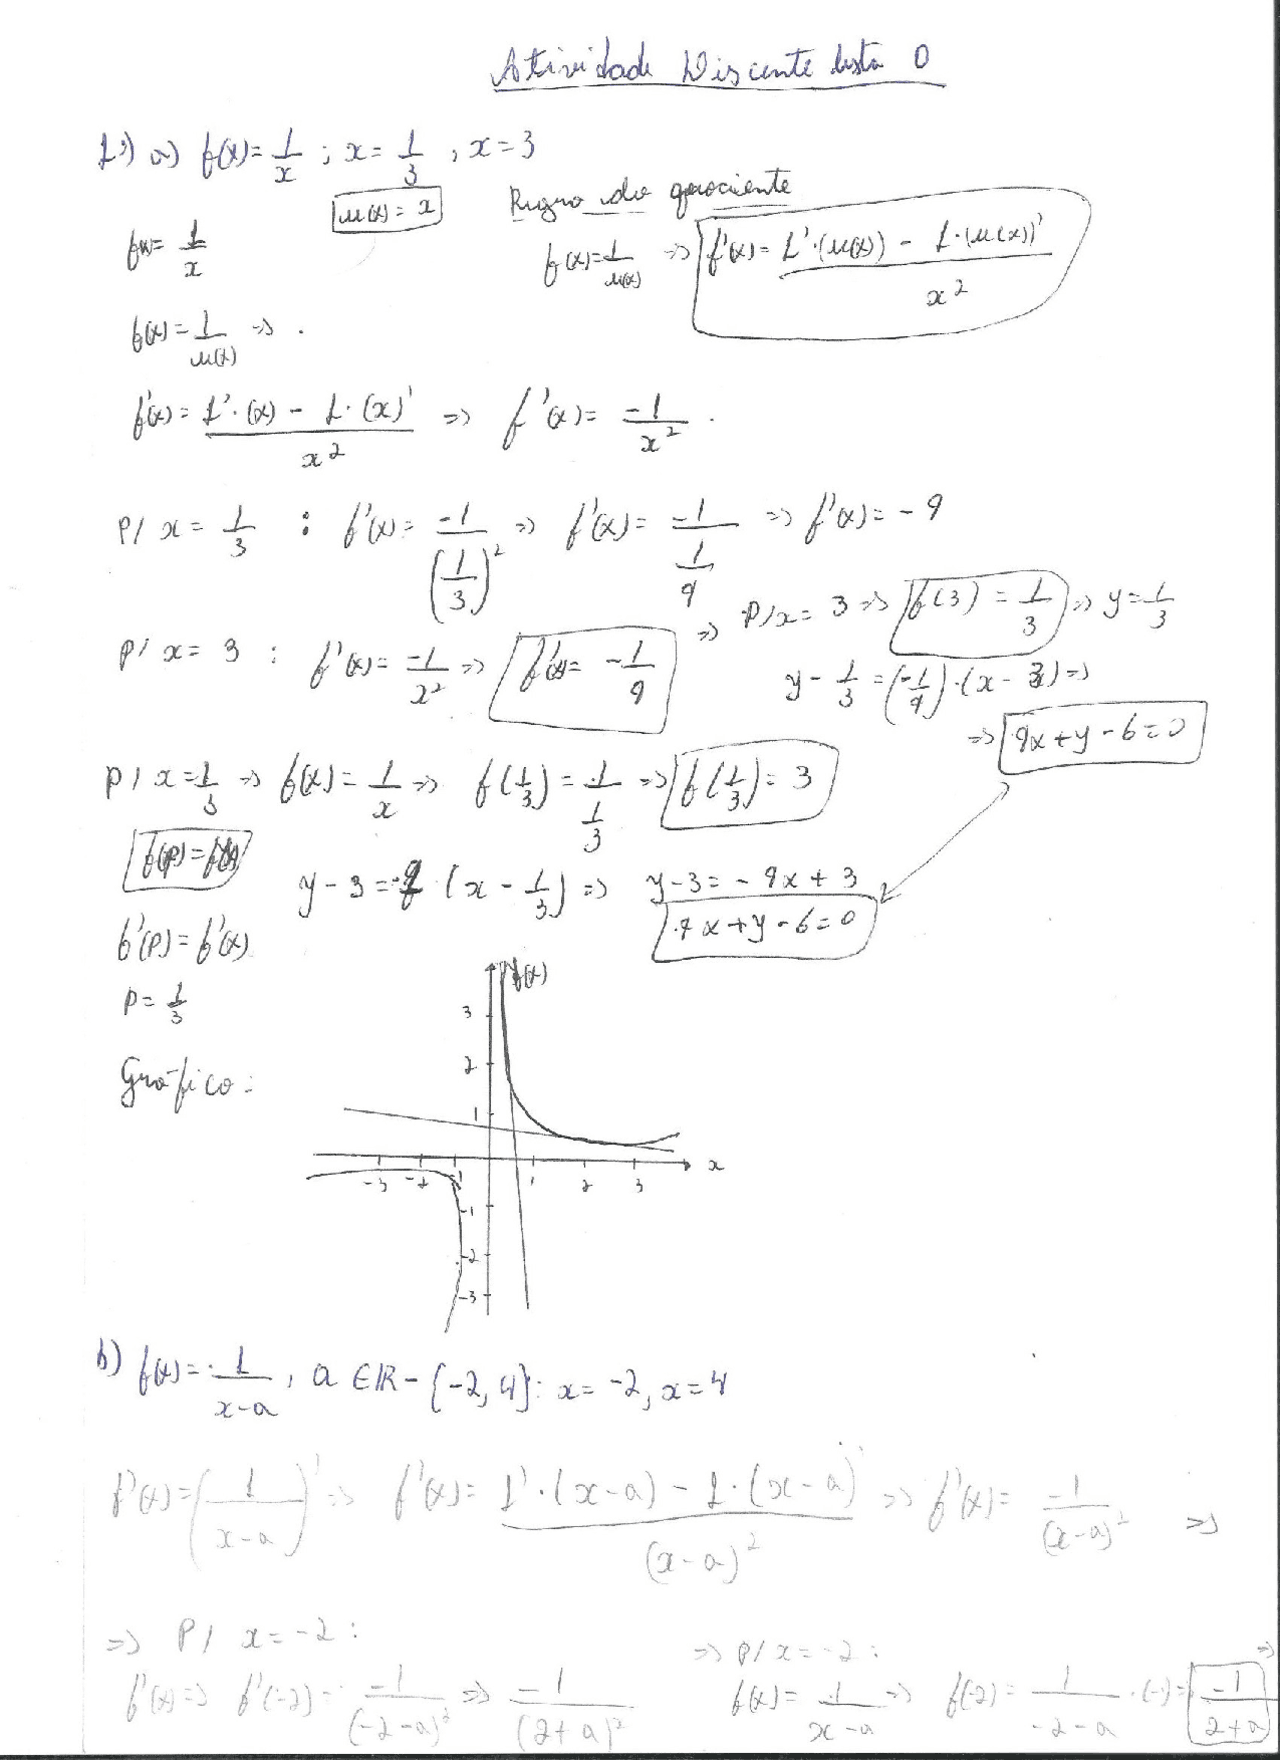 Atividade Discente Lista 0
1º) a) f(x) = 1/x ; x = 1/3 , x = 3
u(x) = x
Regra do quociente
f(x) = 1/x
f(x) = 1/u(x) => f'(x) = (1'·(u(x)) - 1·(u(x))')/x²
f(x) = 1/u(x) => .
f'(x) = (1'·(x) - 1·(x)')/x² => f'(x) = -1/x² .
P/ x = 1/3 : f'(x) = -1/(1/3)² => f'(x) = -1/(1/9) => f'(x) = -9
P/ x = 3 : f'(x) = -1/x² => f'(x) = -1/9 =>
P/ x = 3 => f(3) = 1/3 => y = 1/3
y - 1/3 = (-1/9)·(x - 3) =>
=> 9x + y - 6 = 0
P/ x = 1/3 => f(x) = 1/x => f(1/3) = 1/(1/3) => f(1/3) = 3
f(p) = f(x)
y - 3 = -9·(x - 1/3) => y - 3 = -9x + 3
9x + y - 6 = 0
f'(p) = f'(x)
p = 1/3
Gráfico:
f(x)
3
2
1
-3 -2 -1 1 2 3 x
-1
-2
-3
b) f(x) = 1/(x-a) , a ∈ IR - {-2, 4}: x = -2, x = 4
f'(x) = (1/(x-a))' => f'(x) = (1'·(x-a) - 1·(x-a)')/(x-a)² => f'(x) = -1/(x-a)² =>
=> P/ x = -2 :
f'(x) => f'(-2) = -1/(-2-a)² => -1/(2+a)²
=> P/ x = -2 :
f(x) = 1/(x-a) => f(-2) = 1/(-2-a) ·(-1) = -1/(2+a) =>